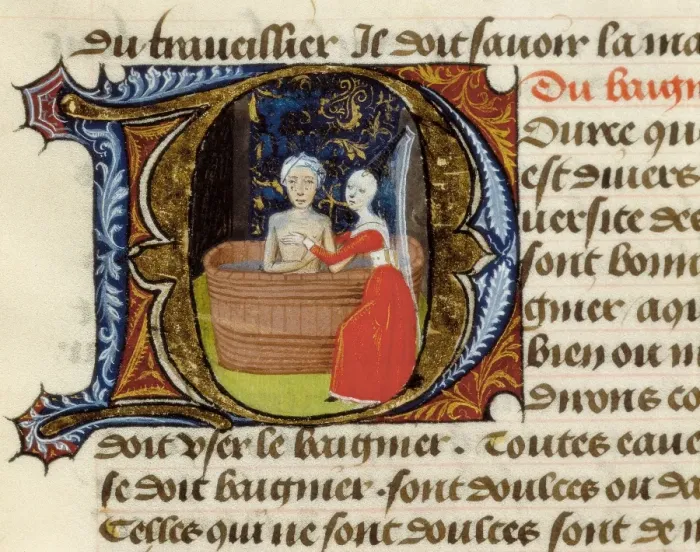 du traueillier Il doit sauoir la ma
Du baign
Ource qu
est diuers
uersite de
sont bonn
gnier aqu
bien ou m
dirons co
doit vser le baignier. Toutes eaue
se doit baignier. sont doulces ou da
Celles qui ne sont doulces sont de n